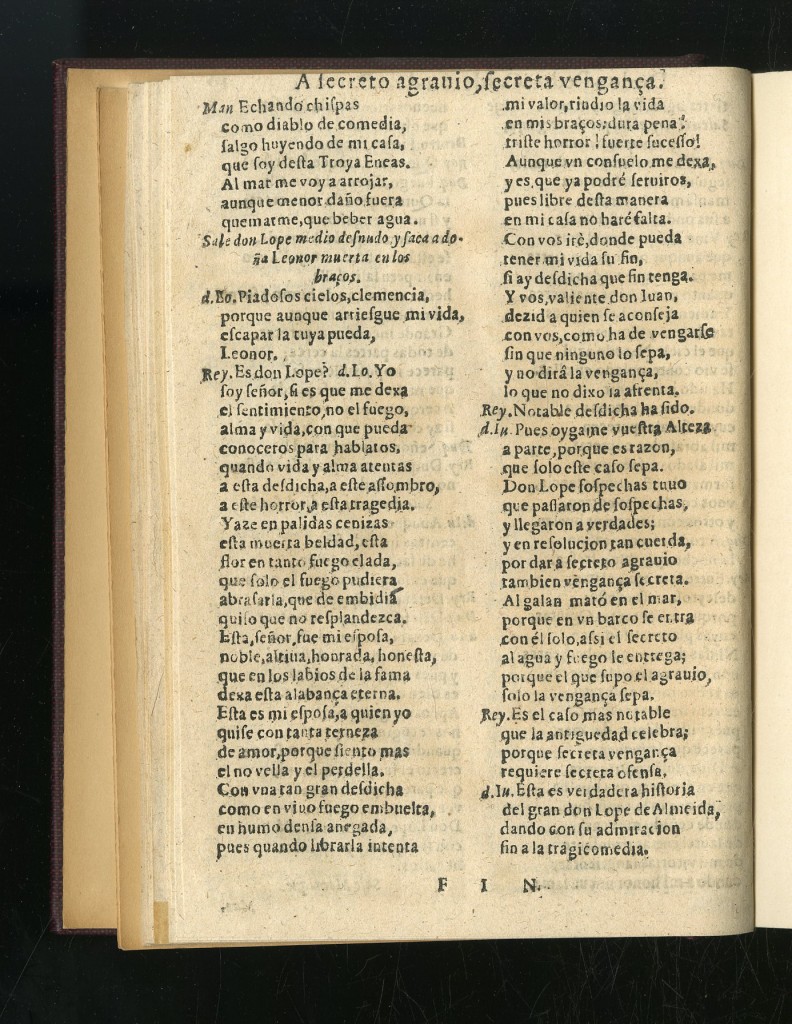 A ſecreto agrauio, ſecreta vengança.
Man Echando chiſpas
como diablo de comedia,
ſalgo huyendo de mi caſa,
que ſoy deſta Troya Eneas.
Al mar me voy a arrojar,
aunque menor daño fuera
quemarme, que beber agua.
Sale don Lope medio deſnudo, y ſaca a do-
ña Leonor muerta en los
braços.
d.Lo. Piadoſos cielos, clemencia,
porque aunque arrieſgue mi vida,
eſcapar la tuya pueda,
Leonor.
Rey. Es don Lope? d.Lo. Yo
ſoy ſeñor, ſi es que me dexa
el ſentimiento, no el fuego,
alma y vida, con que pueda
conoceros para hablatos,
quando vida y alma atentas
a eſta deſdicha, a eſte aſſombro,
a eſte horror, a eſta tragedia.
Yaze en palidas cenizas
eſta muerta beldad, eſta
flor en tanto fuego elada,
que ſolo el fuego pudiera
abraſarla, que de embidia
quiſo que no reſplandezca.
Eſta, ſeñor, fue mi eſpoſa,
noble, altiua, honrada, honeſta,
que en los labios de la fama
dexa eſta alabança eterna.
Eſta es mi eſpoſa, a quien yo
quiſe con tanta terneza
de amor, porque ſiento mas
el no vella y el perdella.
Con vna tan gran deſdicha
como en viuo fuego embuelta,
en humo denſa anegada,
pues quando librarla intenta
mi valor, rindio la vida
en mis braços: dura pena!
triſte horror! fuerte ſuceſſo!
Aunque vn conſuelo me dexa,
y es, que ya podré ſeruiros,
pues libre deſta manera
en mi caſa no haré falta.
Con vos iré, donde pueda
tener mi vida ſu fin,
ſi ay deſdicha que fin tenga.
Y vos, valiente don Iuan,
dezid a quien ſe aconſeja
con vos, como ha de vengarſe
ſin que ninguno lo ſepa,
y no dirá la vengança,
lo que no dixo la afrenta.
Rey. Notable deſdicha ha ſido.
d.Iu. Pues oygame vueſtra Alteza
a parte, porque es razon,
que ſolo eſte caſo ſepa.
Don Lope ſoſpechas tuuo
que paſſaron de ſoſpechas,
y llegaron a verdades;
y en reſolucion tan cuerda,
por dar a ſecreto agrauio
tambien vengança ſecreta.
Al galan mató en el mar,
porque en vn barco ſe entra
con él ſolo, aſsi el ſecreto
al agua y fuego le entrega;
porque el que ſupo el agrauio,
ſolo la vengança ſepa.
Rey. Es el caſo mas notable
que la antiguedad celebra;
porque ſecreta vengança
requiere ſecreta ofenſa.
d.Iu. Eſta es verdadera hiſtoria
del gran don Lope de Almeida,
dando con ſu admiracion
fin a la tragicomedia.
F I N.